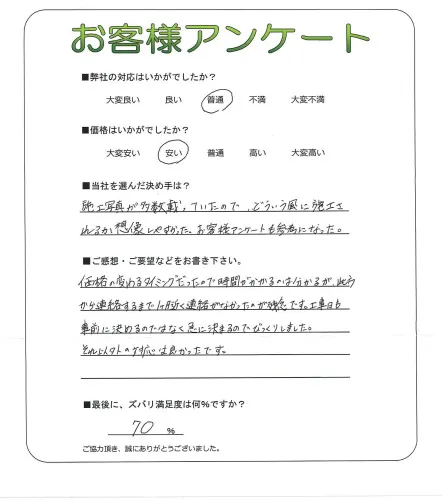 お客様アンケート
■弊社の対応はいかがでしたか？
大変良い 良い 普通 不満 大変不満
■価格はいかがでしたか？
大変安い 安い 普通 高い 大変高い
■当社を選んだ決め手は？
施工写真が多数載っていたので、どういう風に施工さ
れるか想像しやすかった。お客様アンケートも参考になった。
■ご感想・ご要望などをお書き下さい。
価格の変わるタイミングだったので時間がかかるのは分かるが、此方
から連絡するまで1ヶ月近く連絡がなかったのが残念です。工事日も
事前に決めるのではなく急に決まるのでびっくりしました。
それ以外の対応は良かったです。
■最後に、ズバリ満足度は何％ですか？
70 ％
ご協力頂き、誠にありがとうございました。